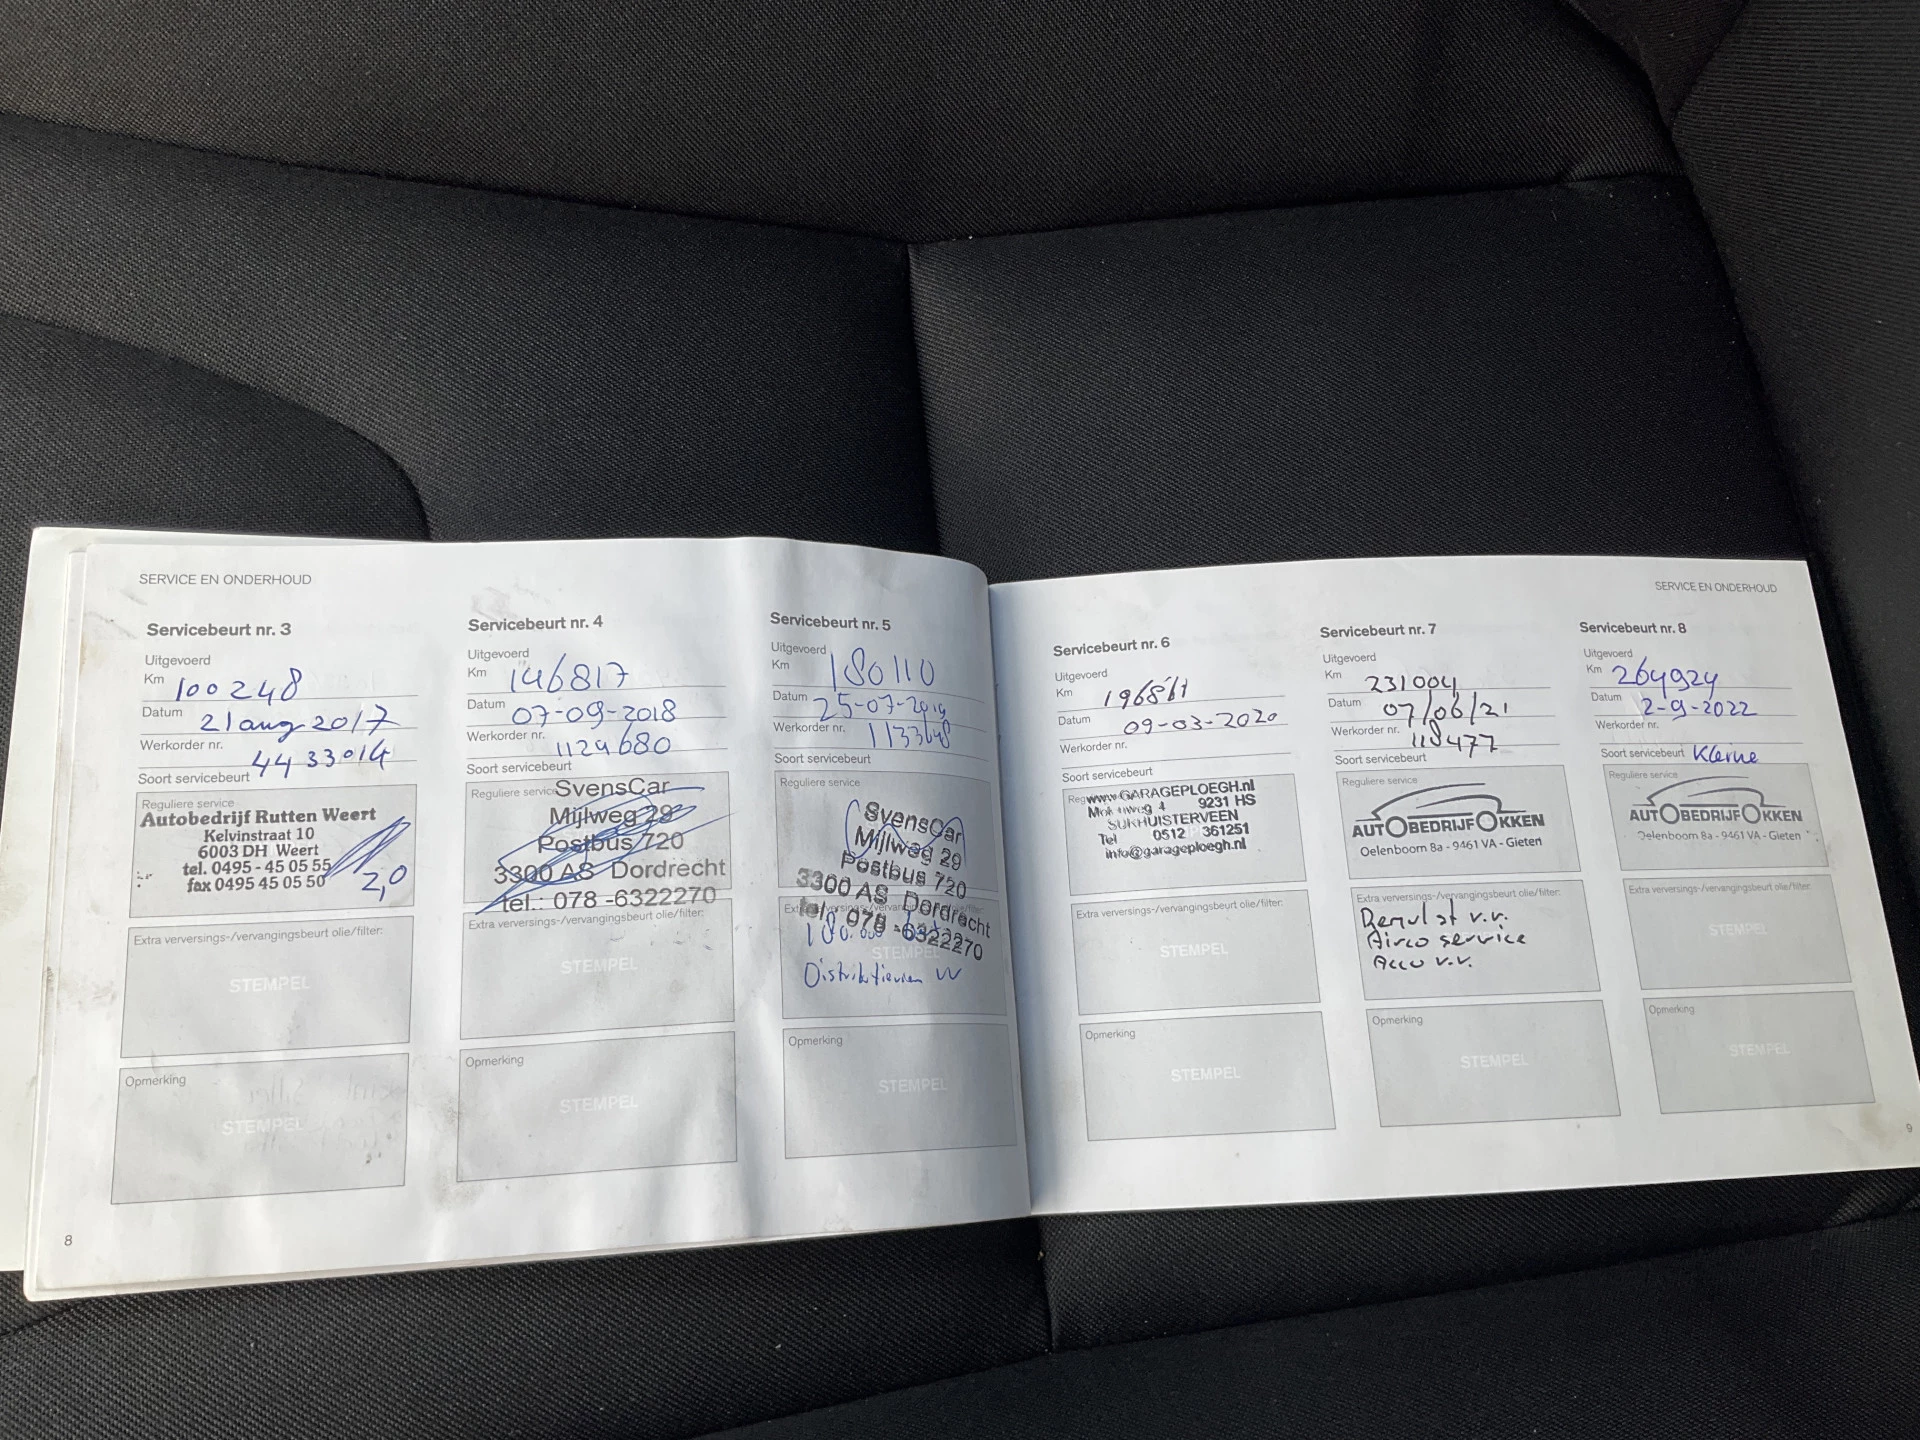 SERVICE EN ONDERHOUD
Servicebeurt nr. 3
Uitgevoerd
Km 100248
Datum 21 aug 2017
Werkorder nr. 4433014
Soort servicebeurt
Reguliere service
Autobedrijf Rutten Weert
Kelvinstraat 10
6003 DH Weert
tel. 0495 - 45 05 55
fax 0495 45 05 50
2,0
Extra verversings-/vervangingsbeurt olie/filter:
STEMPEL
Opmerking
STEMPEL
8
Servicebeurt nr. 4
Uitgevoerd
Km 146817
Datum 07-09-2018
Werkorder nr. 1129680
Soort servicebeurt
Reguliere service
SvensCar
Mijlweg 29
Postbus 720
3300 AS Dordrecht
tel.: 078 -6322270
Extra verversings-/vervangingsbeurt olie/filter:
STEMPEL
Opmerking
STEMPEL
Servicebeurt nr. 5
Uitgevoerd
Km 180110
Datum 25-07-2019
Werkorder nr. 1133648
Soort servicebeurt
Reguliere service
SvensCar
Mijlweg 29
Postbus 720
3300 AS Dordrecht
tel.: 078 -6322270
180.000
STEMPEL
Distributieriem VV
Opmerking
STEMPEL
SERVICE EN ONDERHOUD
Servicebeurt nr. 6
Uitgevoerd
Km 196861
Datum 09-03-2020
Werkorder nr.
Soort servicebeurt
www.GARAGEPLOEGH.nl
4 9231 HS
SURHUISTERVEEN
Tel 0512 361251
info@garageploegh.nl
Extra verversings-/vervangingsbeurt olie/filter:
STEMPEL
Opmerking
STEMPEL
Servicebeurt nr. 7
Uitgevoerd
Km 231004
Datum 07/06/21
Werkorder nr. 118477
Soort servicebeurt
Reguliere service
AUTOBEDRIJF OKKEN
Oelenboom 8a - 9461 VA - Gieten
Extra verversings-/vervangingsbeurt olie/filter:
Remvlst v.v.
Airco service
Accu v.v.
Opmerking
STEMPEL
Servicebeurt nr. 8
Uitgevoerd
Km 264924
Datum 2-9-2022
Werkorder nr.
Soort servicebeurt Kleine
Reguliere service
AUTOBEDRIJF OKKEN
Oelenboom 8a - 9461 VA - Gieten
Extra verversings-/vervangingsbeurt olie/filter:
STEMPEL
Opmerking
STEMPEL
9